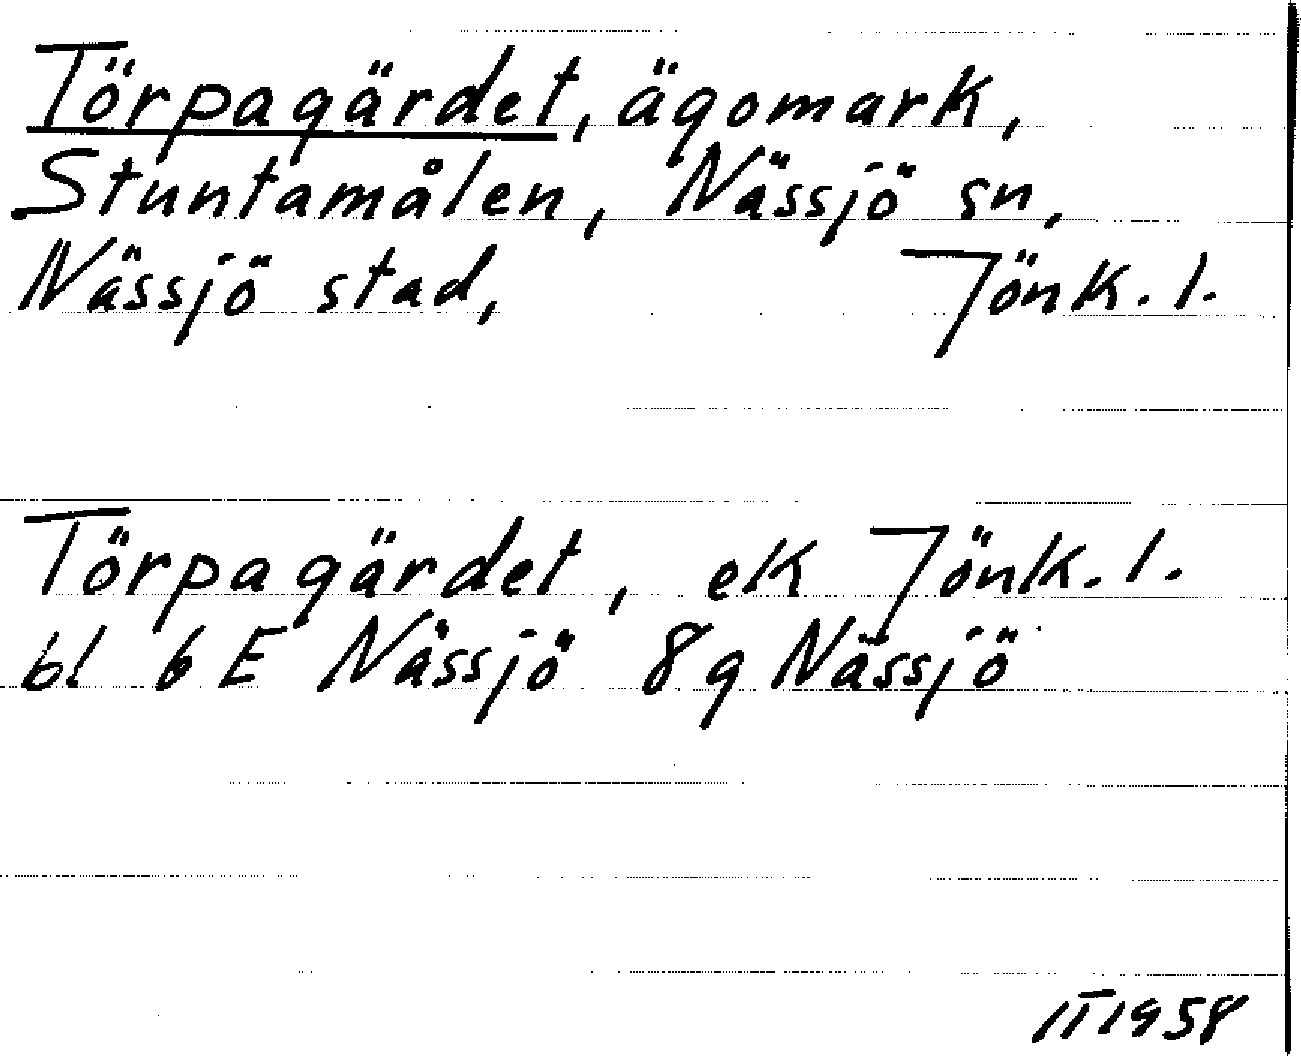 Törpagärdet, ägomark,
Stuntamålen, Nässjö sn,
Nässjö stad, Jönk. l.
Törpagärdet, ek Jönk. l.
bl 6E Nässjö 8g Nässjö
IT 1958